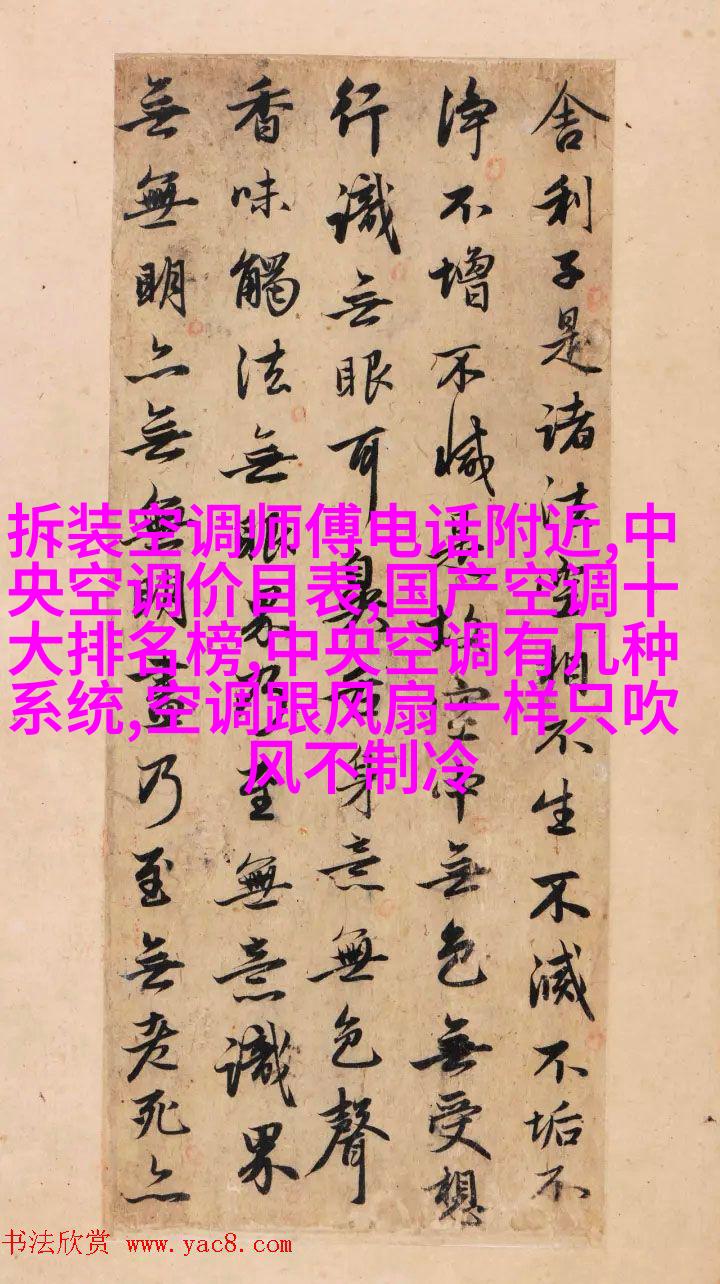 舍利子是諸法空相不生不滅不垢不
淨不增不減是故空中無色無受想
行識無眼耳鼻舌身意無色聲
香味觸法無眼界乃至無意識界
無無明亦無無明盡乃至無老死亦
拆装空调师傅电话附近,中
央空调价目表,国产空调十
大排名榜,中央空调有几种
系统,空调跟风扇一样只吹
风不制冷
书法欣赏 www.yac8.com